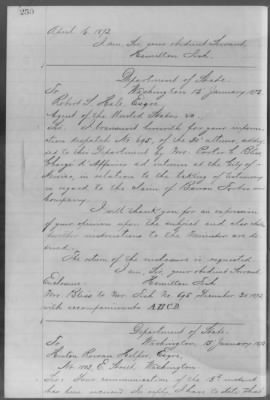 250
April 16. 1872
I am, Sir, your obedient Servant
Hamilton Fish.
Department of State.
Washington 15 January 1872.
To
Robert S. Hale, Esqre
Agent of the United States &c.
Sir: I transmit herewith for your inform-
ation despatch No 695, of the 30th ultimo, address-
ed to this Department by Mr. Porter C. Bliss,
Chargé d'Affaires ad interim at the City of
Mexico, in relation to the taking of testimony
in regard to the claim of Barron Forbes and
Company.
I will thank you for an expression
of your opinion upon the subject and also
whether instructions to the Minister are de-
sired.
The return of the enclosure is requested
I am, Sir, your obedient Servant
Enclosure. Hamilton Fish
Mr. Bliss to Mr. Fish No 695 December 30 1871,
with accompaniments A B C D.
Department of State.
Washington, 15 January, 1872
To
Hinton Rowan Helper, Esqre,
No. 1102, E. Street, Washington
Sir: Your communication of the 13th instant
has been received. In reply, I have to state that